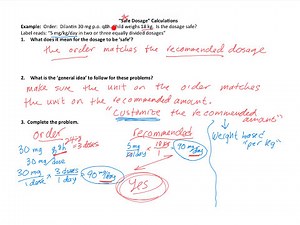 "Safe Dosage" Calculations
Example: Order: Dilantin 30 mg p.o. q8h child weighs 18 kg. Is the dosage safe?
Label reads: "5 mg/kg/day in two or three equally divided dosages"
1. What does it mean for the dosage to be 'safe'?
the order matches the recommended dosage
2. What is the 'general idea' to follow for these problems?
make sure the unit on the order matches
the unit on the recommended amount.
"Customize the recommended
amount"
3. Complete the problem.
Order
Recommended
Weight based
"per kg"
30 mg q 8h = 3 doses
30 mg/dose
5 mg/kg/day × 18 kg/1 = 90 mg/day
30 mg/1 dose × 3 doses/1 day = 90 mg/day
Yes